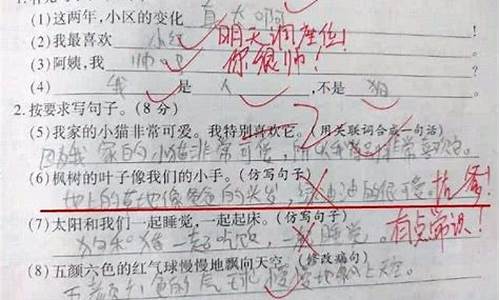 (1)这两年,小区的变化真大啊
(2)我最喜欢 小红 明天调座位!
(3)阿姨,我 帅吧 你很帅!
(4) 我 是 人 ,不是 狼
2.按要求写句子。(8分)
(5)我家的小猫非常可爱。我特别喜欢它。(用关联词合成一句话)
因为我家的小猫非常可爱,所以我非常喜欢它。
(6)枫树的叶子像我们的小手。(仿写句子)
地上的草地像爸爸的头发,绿油油的很可爱。
(7)太阳和我们一起睡觉,一起起床。(仿写句子)
一起吃饭,一起睡觉。 有点常识!
(8)五颜六色的红气球慢慢地飘向天空。(修改病句)
五颜六色的气球慢慢地飘上天空。